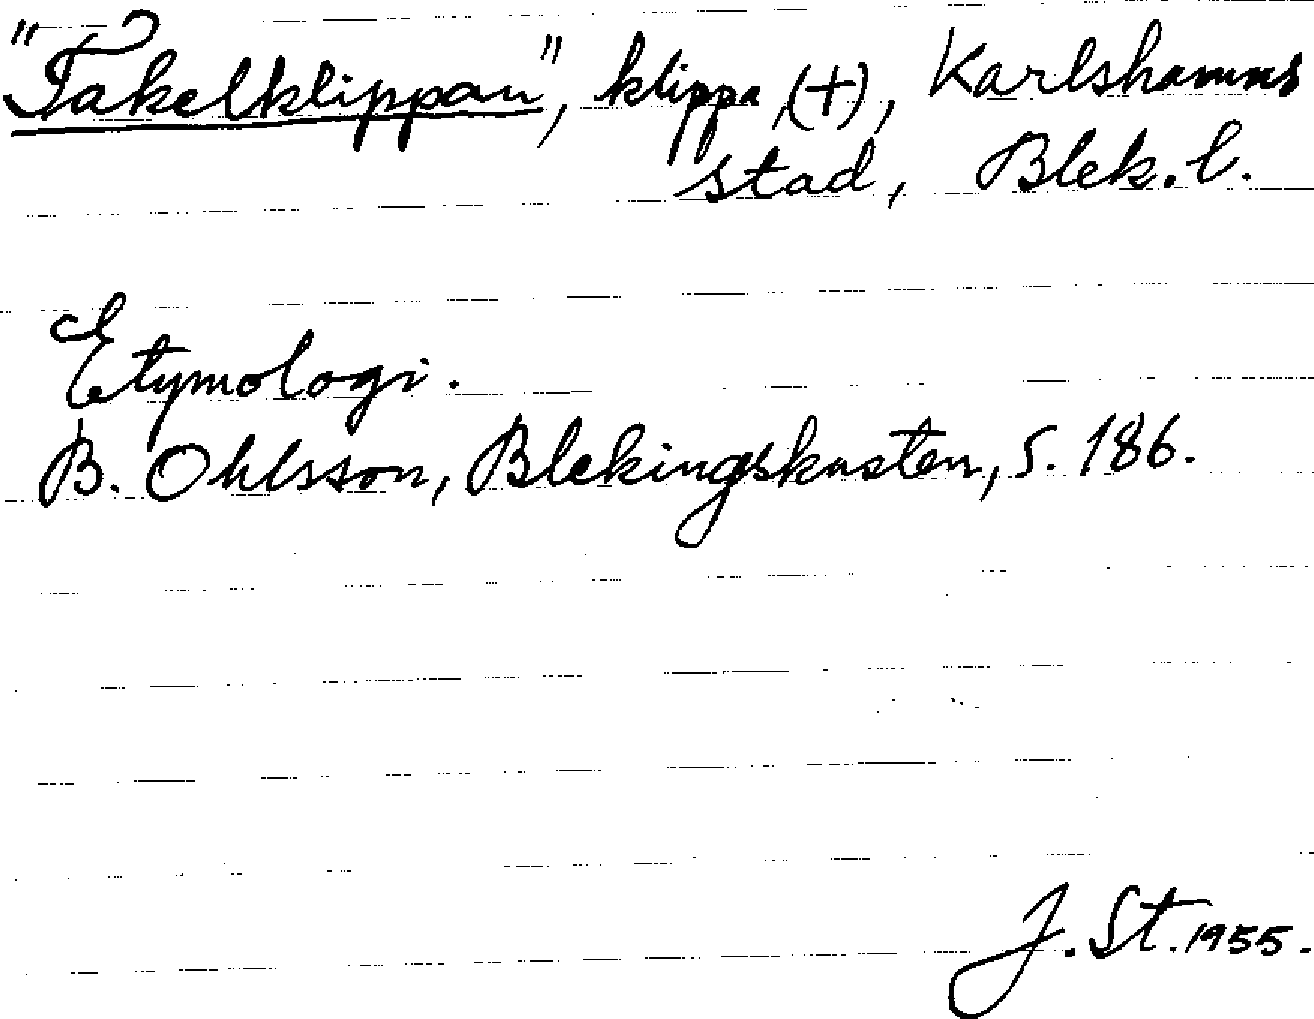 "Takelklippan", klippa (+), Karlshamns
stad, Blek. l.
Etymologi.
B. Ohlsson, Blekingskusten, s. 186.
J. St. 1955.